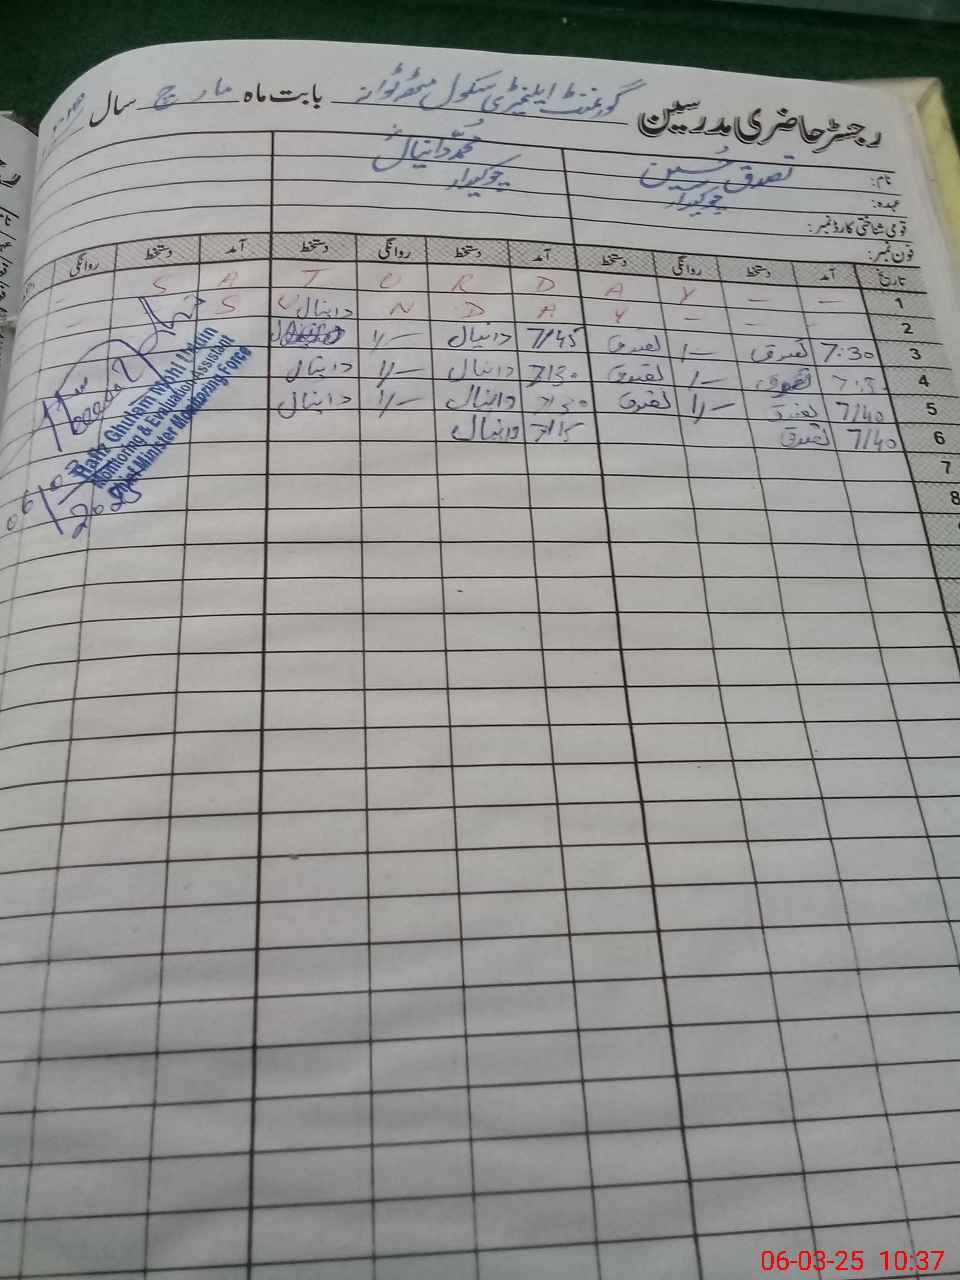 رجسٹر حاضری مدرسین گورنمنٹ ایلیمنٹری سکول مٹھہ ٹوانہ بابت ماہ مارچ سال
نام: تصدق حسین محمد دانیال
عہدہ: چوکیدار چوکیدار
قومی شناختی کارڈ نمبر:
فون نمبر:
تاریخ آمد دستخط روانگی دستخط آمد دستخط روانگی دستخط آمد دستخط روانگی
1 — — S A T U R D A Y —
2 S U N D A Y — دانیال
3 7:30 تصدق 1/— تصدق 7/45 دانیال 1/—
4 7:30 تصدق 1/— تصدق 7/30 دانیال 1/— دانیال
5 7/40 تصدق 1/— تصدق 7/30 دانیال 1/— دانیال
6 7/40 تصدق 7/15 دانیال
7
8
Hafiz Ghulam Mohi Uddin
Monitoring & Evaluation Assistant
Chief Minister Monitoring Force
06/03/2025
06-03-25 10:37